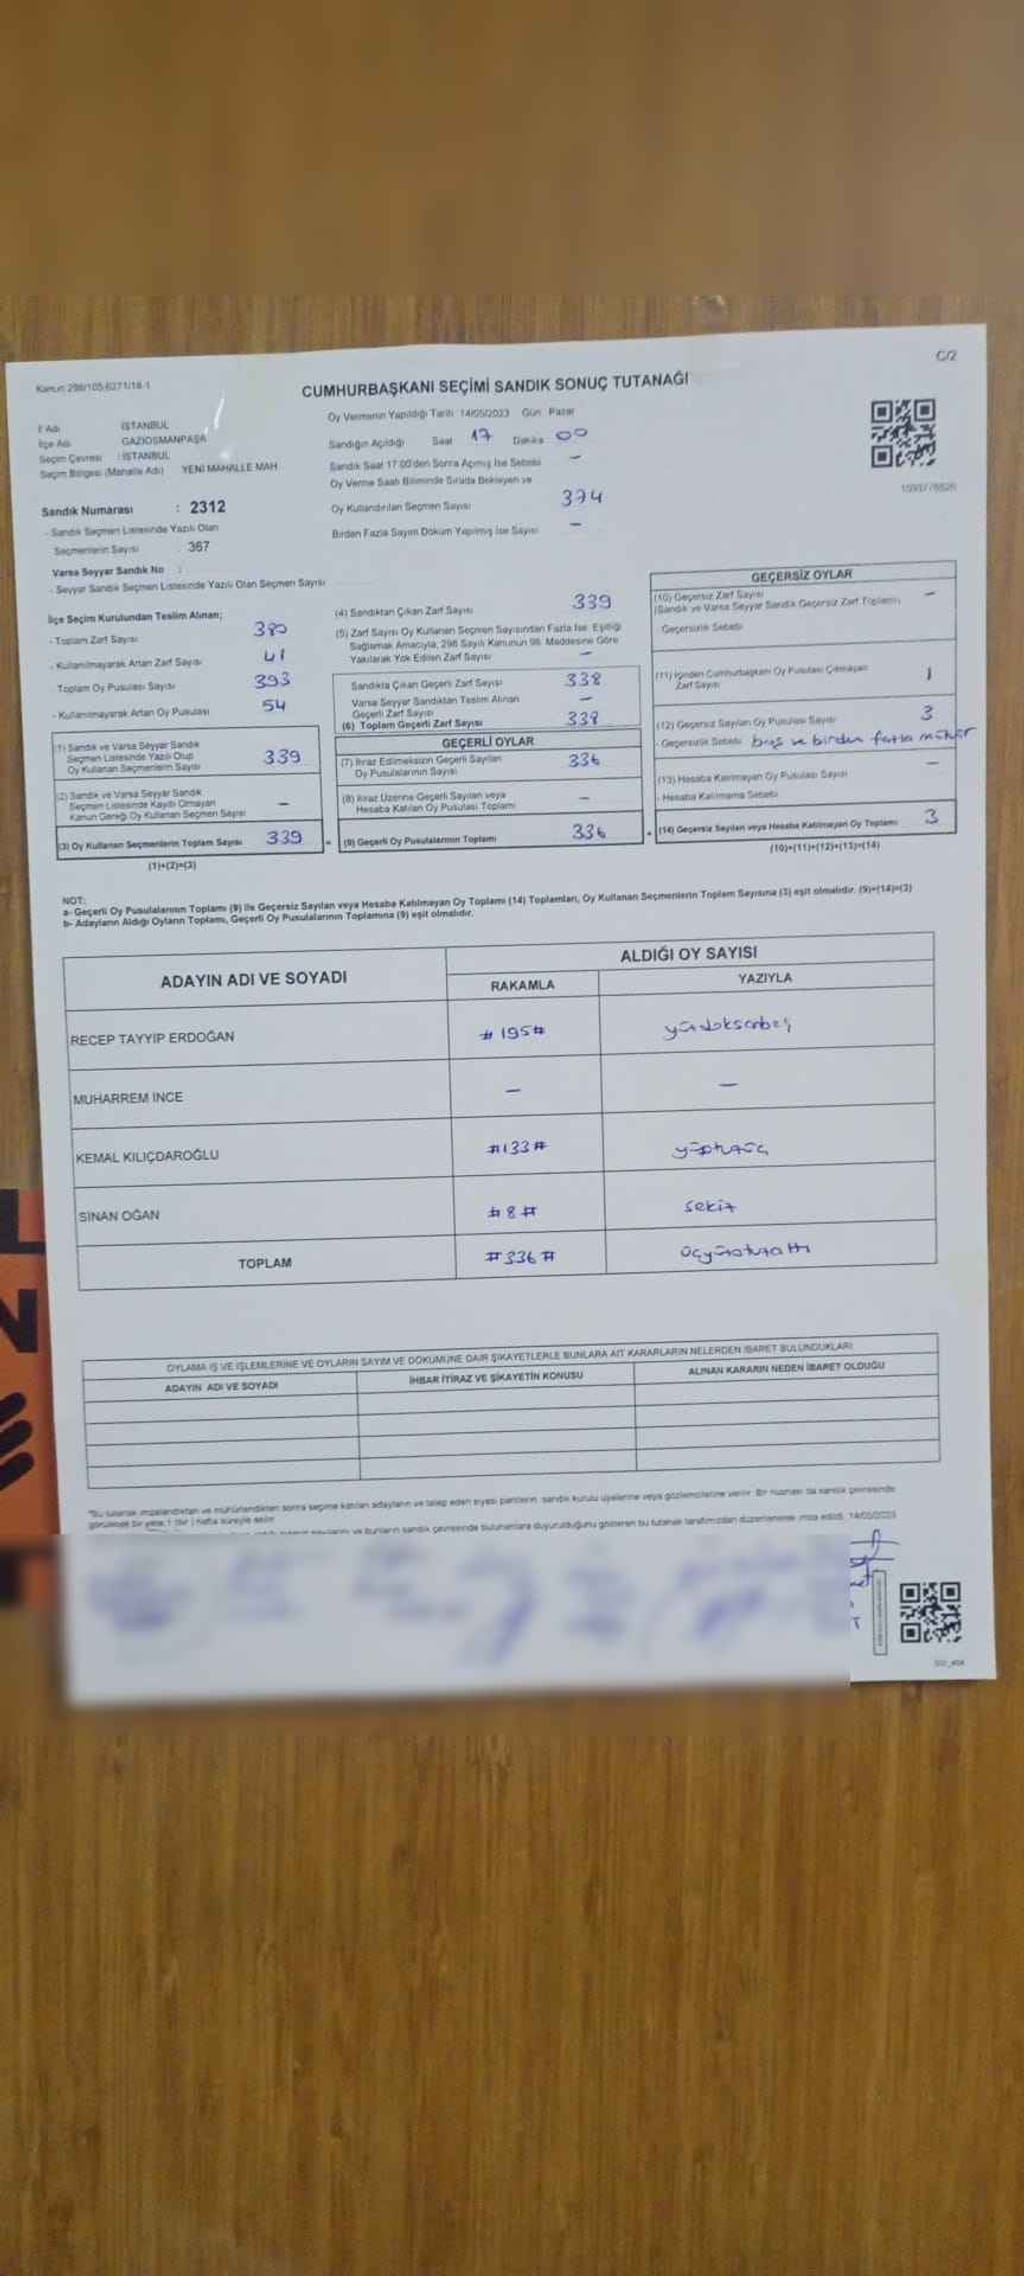 C/2
Kanun: 298/105-6271/18-1
CUMHURBAŞKANI SEÇİMİ SANDIK SONUÇ TUTANAĞI
İl Adı İSTANBUL
İlçe Adı GAZİOSMANPAŞA
Seçim Çevresi : İSTANBUL
Seçim Bölgesi (Mahalle Adı) YENİ MAHALLE MAH
Sandık Numarası : 2312
- Sandık Seçmen Listesinde Yazılı Olan
Seçmenlerin Sayısı 367
Varsa Seyyar Sandık No :
- Seyyar Sandık Seçmen Listesinde Yazılı Olan Seçmen Sayısı
Oy Vermenin Yapıldığı Tarih 14/05/2023 Gün Pazar
Sandığın Açıldığı Saat 17 Dakika 00
Sandık Saat 17.00'den Sonra Açmış İse Sebebi -
Oy Verme Saati Bitiminde Sırada Bekleyen ve
Oy Kullandırılan Seçmen Sayısı 374
Birden Fazla Sayım Döküm Yapılmış İse Sayısı -
İlçe Seçim Kurulundan Teslim Alınan;
- Toplam Zarf Sayısı 380
- Kullanılmayarak Artan Zarf Sayısı 41
Toplam Oy Pusulası Sayısı 393
- Kullanılmayarak Artan Oy Pusulası 54
(1) Sandık ve Varsa Seyyar Sandık
Seçmen Listesinde Yazılı Olup
Oy Kullanan Seçmenlerin Sayısı 339
(2) Sandık ve Varsa Seyyar Sandık
Seçmen Listesinde Kayıtlı Olmayan
Kanun Gereği Oy Kullanan Seçmen Sayısı -
(3) Oy Kullanan Seçmenlerin Toplam Sayısı 339
(1)+(2)=(3)
(4) Sandıktan Çıkan Zarf Sayısı 339
(5) Zarf Sayısı Oy Kullanan Seçmen Sayısından Fazla İse Eşitliği
Sağlamak Amacıyla, 298 Sayılı Kanunun 98. Maddesine Göre
Yakılarak Yok Edilen Zarf Sayısı -
Sandıkta Çıkan Geçerli Zarf Sayısı 338
Varsa Seyyar Sandıktan Teslim Alınan
Geçerli Zarf Sayısı -
(6) Toplam Geçerli Zarf Sayısı 338
GEÇERLİ OYLAR
(7) İtiraz Edilmeksizin Geçerli Sayılan
Oy Pusulalarının Sayısı 336
(8) İtiraz Üzerine Geçerli Sayılan veya
Hesaba Katılan Oy Pusulası Toplamı -
(9) Geçerli Oy Pusulalarının Toplamı 336
GEÇERSİZ OYLAR
(10) Geçersiz Zarf Sayısı -
(Sandık ve Varsa Seyyar Sandık Geçersiz Zarf Toplamı)
Geçersizlik Sebebi
(11) İçinden Cumhurbaşkanı Oy Pusulası Çıkmayan
Zarf Sayısı 1
(12) Geçersiz Sayılan Oy Pusulası Sayısı 3
- Geçersizlik Sebebi boş ve birden fazla mühür
(13) Hesaba Katılmayan Oy Pusulası Sayısı -
- Hesaba Katılmama Sebebi
(14) Geçersiz Sayılan veya Hesaba Katılmayan Oy Toplamı 3
(10)+(11)+(12)+(13)=(14)
NOT:
a- Geçerli Oy Pusulalarının Toplamı (9) ile Geçersiz Sayılan veya Hesaba Katılmayan Oy Toplamı (14) Toplamları, Oy Kullanan Seçmenlerin Toplam Sayısına (3) eşit olmalıdır. (9)+(14)=(3)
b- Adayların Aldığı Oyların Toplamı, Geçerli Oy Pusulalarının Toplamına (9) eşit olmalıdır.
ADAYIN ADI VE SOYADI ALDIĞI OY SAYISI
RAKAMLA YAZIYLA
RECEP TAYYİP ERDOĞAN #195# yüzdoksanbeş
MUHARREM İNCE - -
KEMAL KILIÇDAROĞLU #133# yüzotuzüç
SİNAN OĞAN #8# sekiz
TOPLAM #336# üçyüzotuzaltı
OYLAMA İŞ VE İŞLEMLERİNE VE OYLARIN SAYIM VE DÖKÜMÜNE DAİR ŞİKAYETLERLE BUNLARA AİT KARARLARIN NELERDEN İBARET BULUNDUKLARI
ADAYIN ADI VE SOYADI İHBAR İTİRAZ VE ŞİKAYETİN KONUSU ALINAN KARARIN NEDEN İBARET OLDUĞU
"Bu tutanak imzalandıktan ve mühürlendikten sonra seçime katılan adayların ve talep eden siyasi partilerin sandık kurulu üyelerine veya gözlemcilerine verilir. Bir nüshası da sandık çevresinde
görülebilir bir yere 1 (bir) hafta süreyle asılır.
ve bunların sandık çevresinde bulunanlara duyurulduğunu gösteren bu tutanak tarafımızdan düzenlenerek imza edildi. 14/05/2023